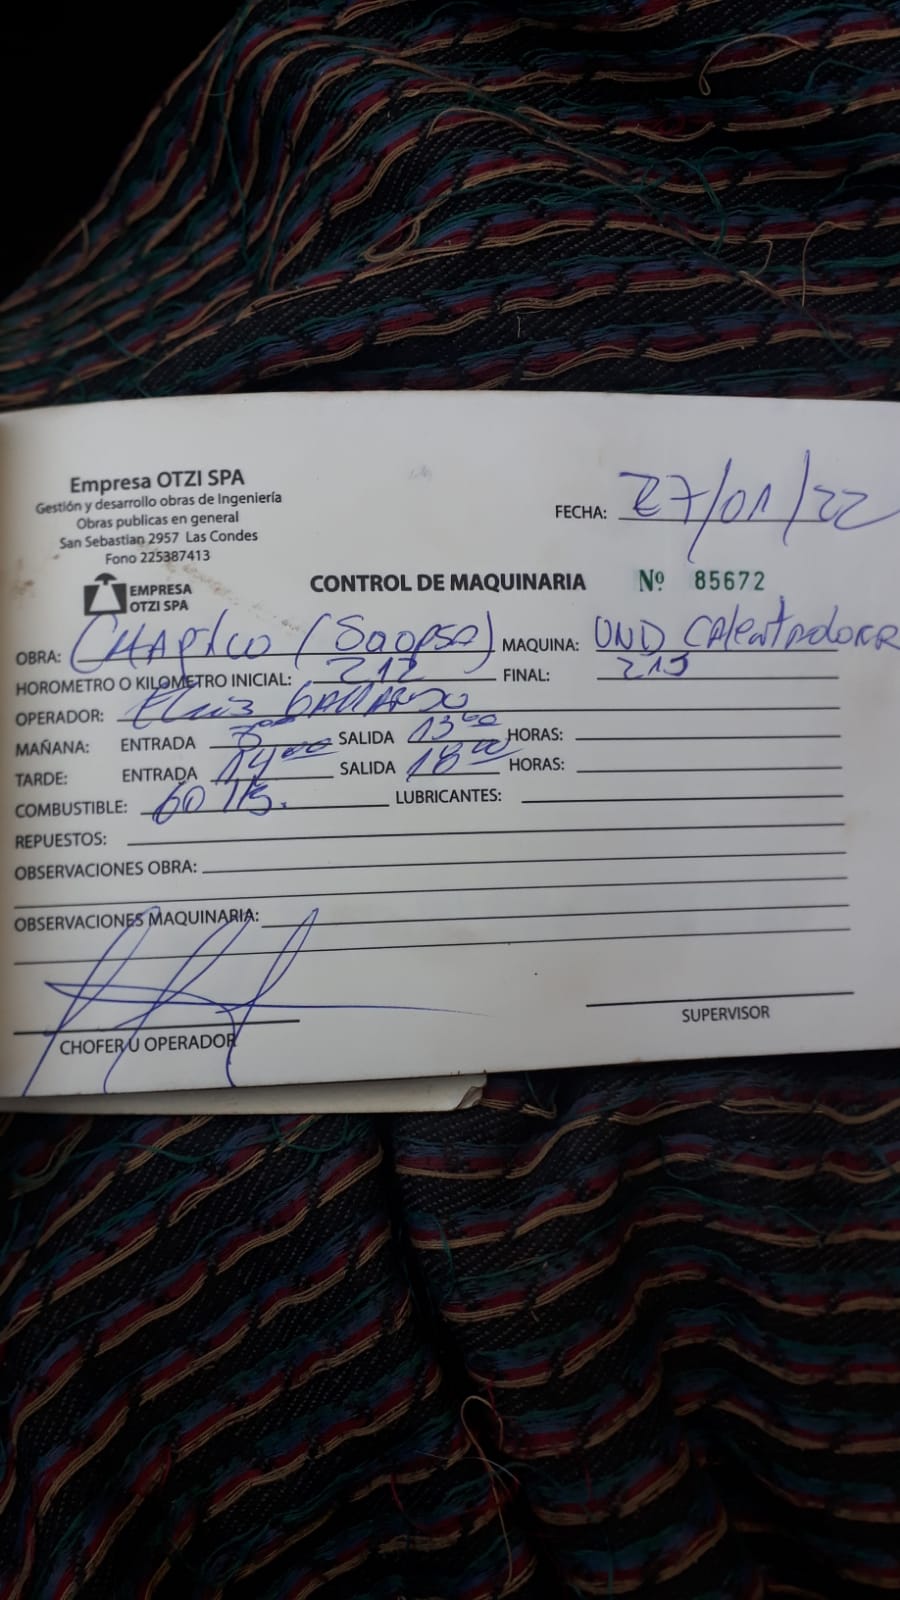 Empresa OTZI SPA
Gestión y desarrollo obras de Ingeniería
Obras publicas en general
San Sebastian 2957 Las Condes
Fono 225387413
EMPRESA
OTZI SPA
FECHA: 27/01/22
CONTROL DE MAQUINARIA Nº 85672
OBRA: MAQUINA: UND
HOROMETRO O KILOMETRO INICIAL: 212 FINAL:
OPERADOR:
MAÑANA: ENTRADA 8:00 SALIDA 13:00 HORAS:
TARDE: ENTRADA 14:00 SALIDA 18:00 HORAS:
COMBUSTIBLE: 60 LUBRICANTES:
REPUESTOS:
OBSERVACIONES OBRA:
OBSERVACIONES MAQUINARIA:
CHOFER U OPERADOR
SUPERVISOR